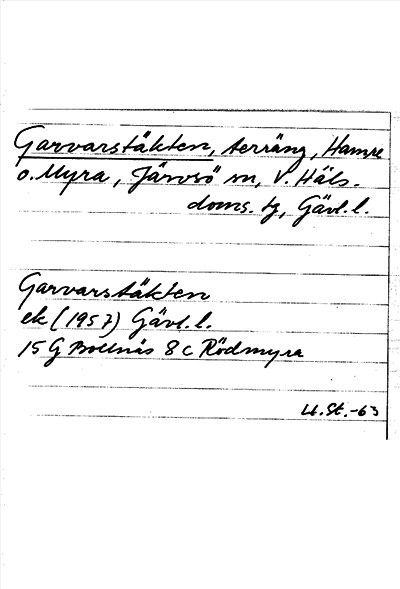 Garvarstäkten, terräng, Hamre
o. Myra, Järvsö sn, V. Häls.
doms. tg, Gävl. l.
Garvarstäkten
ek (1957) Gävl. l.
15 G Bollnäs 8 c Rödmyra
Ll. St. -63